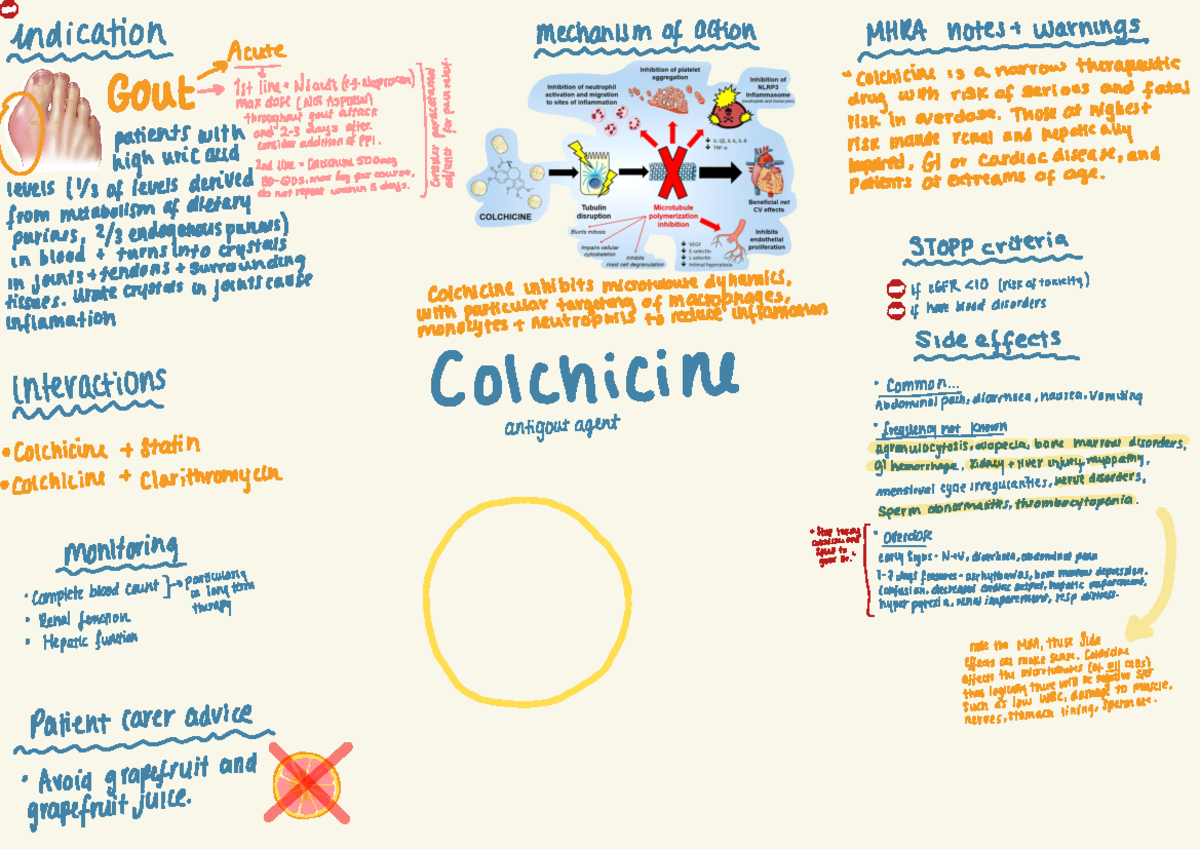 Indication
Gout
Acute
1st line = NSAIDS (e.g. Naproxen)
max dose (NOT Aspirin)
throughout gout attack
and 2-3 days after.
consider addition of PPI.
2nd line = Colchicine 500mcg
BD-QDS, max 6mg per course,
do not repeat within 3 days.
Consider paracetamol
adjunct
for pain relief.
patients with
high uric acid
levels (1/3 of levels derived
from metabolism of dietary
purines, 2/3 endogenous purines)
in blood + turns into crystals
in joints + tendons + surrounding
tissues. Urate crystals in joints cause
inflamation
Interactions
• Colchicine + Statin
• Colchicine + Clarithromycin
Monitoring
• Complete blood count → particularly
in long term
therapy
• Renal function
• Hepatic function
Patient carer advice
• Avoid grapefruit and
grapefruit juice.
Mechanism of action
Inhibition of platelet
aggregation
Inhibition of neutrophil
activation and migration
to sites of inflammation
Inhibition of
NLRP3
Inflammasome
(neutrophils and monocytes)
IL-1β, IL-6, IL-8
TNF-α
COLCHICINE
Tubulin
disruption
Microtubule
polymerization
inhibition
Beneficial net
CV effects
Blunts mitosis
Impairs cellular
cytoskeleton
Inhibits
mast cell degranulation
VEGF
E-selectin
L-selectin
Intimal hyperplasia
Inhibits
endothelial
proliferation
Colchicine inhibits microtubule dynamics,
with particular targeting of macrophages,
monocytes + neutrophils to reduce inflamation
Colchicine
antigout agent
MHRA notes + warnings
• Colchicine is a narrow therapeutic
drug with risk of serious and fatal
risk in overdose. Those at highest
risk inlude renal and hepatically
impaired, GI or cardiac disease, and
patients at extreams of age.
STOPP criteria
if eGFR <10 (risk of toxicity)
if have blood disorders
Side effects
• Common...
Abdominal pain, diarrhoea, nausea, vomiting
• frequency not known
agranulocytosis, alopecia, bone marrow disorders,
GI hemorrhage, kidney + liver injury, myopathy,
menstrual cycle irregularities, nerve disorders,
Sperm abnormalities, thrombocytopenia.
• Overdose
early signs = N+V, diarrhoea, abdominal pain
1-7 days features = arrhythmias, bone marrow depression,
confusion, decreased cardiac output, hepatic impairment,
hyperpyrexia, renal impairment, resp distress.
• Stop taking
colchicine and
speak to
your Dr.
note the MOA, these side
effects all make sense. Colchicine
affects the microtubules (of all cells)
thus logically there will be negative
such as low WBC, damage to muscle,
nerves, stomach lining, spermate.